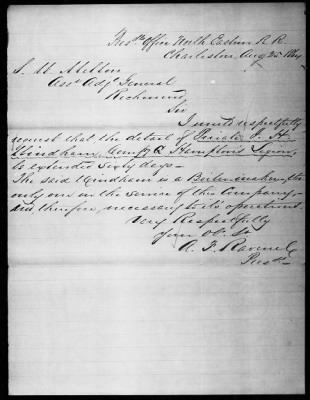 Prest's Office North Eastern R. R.
Charleston Aug 25 1864
S. W. Melton
Asst Adjt General
Richmond
Sir
I would respectfully
request that the detail of Private
Windham, Comp Hampton's Legion,
be extended Sixty days—
The said Windham is a Boiler maker, the
only one in the service of this Company,
and therefore necessary to its operations
Very Respectfully
Your Ob. St
A. F. Ravenel
Prest